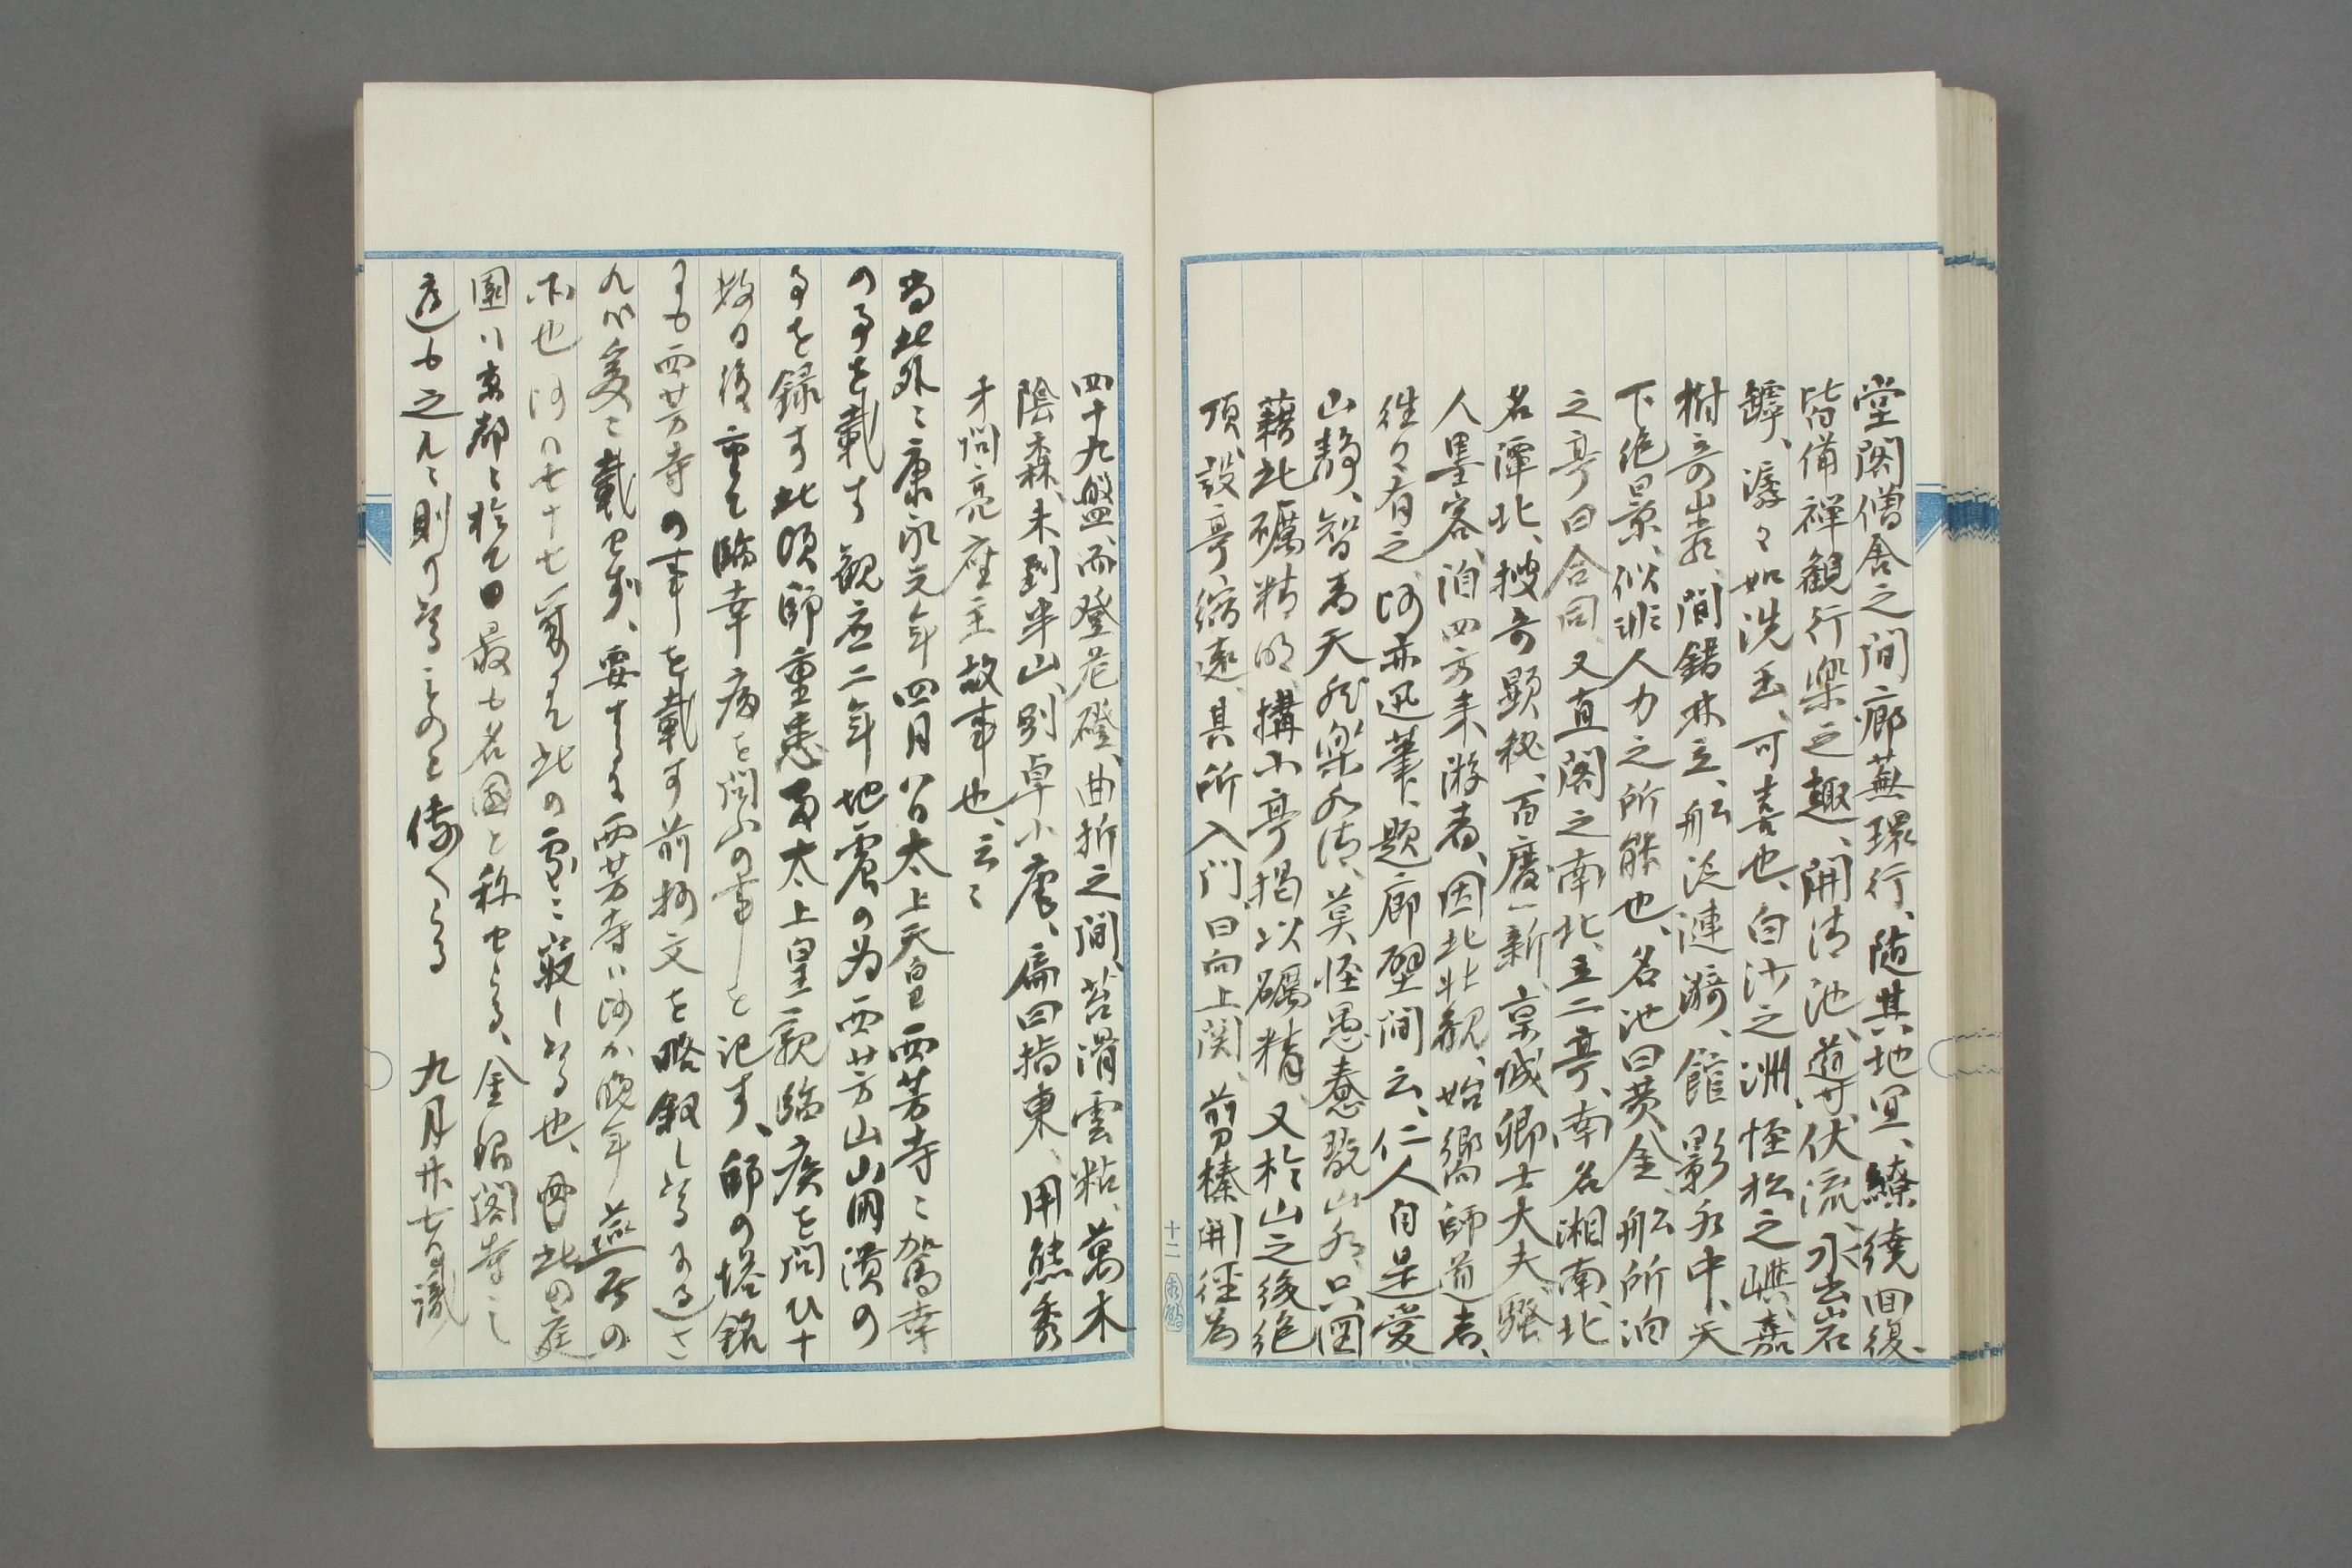 堂閣僧舎之間廊蕪環行、随其地冝、繚繞回復
皆備禅観行樂之趣、開清池、導伏流、水出岩
罅、潺々如洗玉、可喜也、白沙之洲、怪松之嶼、嘉
樹奇岩、間錯林立、船泛漣漪、館影水中、天
下絶景、似非人力之所能也、名池曰黄金、船所泊
之亭曰合同、又直閣之南北、立二亭、南名湘南、北
名潭北、捜奇顕秘、百廢一新、京城卿士大夫、騒
人墨客、洎四方来游者、因此壮観、始嚮師道者、
往々有之、師亦迅筆、題廊壁間云、仁人自是愛
山静、智者天然楽水清、莫怪愚惷翫山水、只図
藉此礪精明、搆小亭掲以礪精、又於山之後絶
頂、設亭縮遠、其所入門曰向上関、剪榛開径為
十二
四十九盤、而登危磴、曲折之間、苔滑雲粘、萬木
陰森、未到半山、別卓小庵、扁曰指東、用熊秀
才問亮座主故事也、云々
尚此外ニ康永元年四月八日太上天皇西芳寺ニ駕幸
の事を載す 観应二年地震の為西芳山山岡潰の
事を録す此頃師重恙あ太上皇親臨疾を問ひ十
数日後重て臨幸病を問ふの事を記す、師の塔銘
にも西芳寺の事を載す前掲文を略叙し
ハ爰ニ載せず、要するに西芳寺ハ師か晩年燕居の
所也 師ハ七十七歳にて此の處ニ寂しゐる也、此の庭
園ハ京都ニ於て最も名園と称せらる、金銀閣寺の
庭も之れニ則り 傳へらる 九月廿七日識